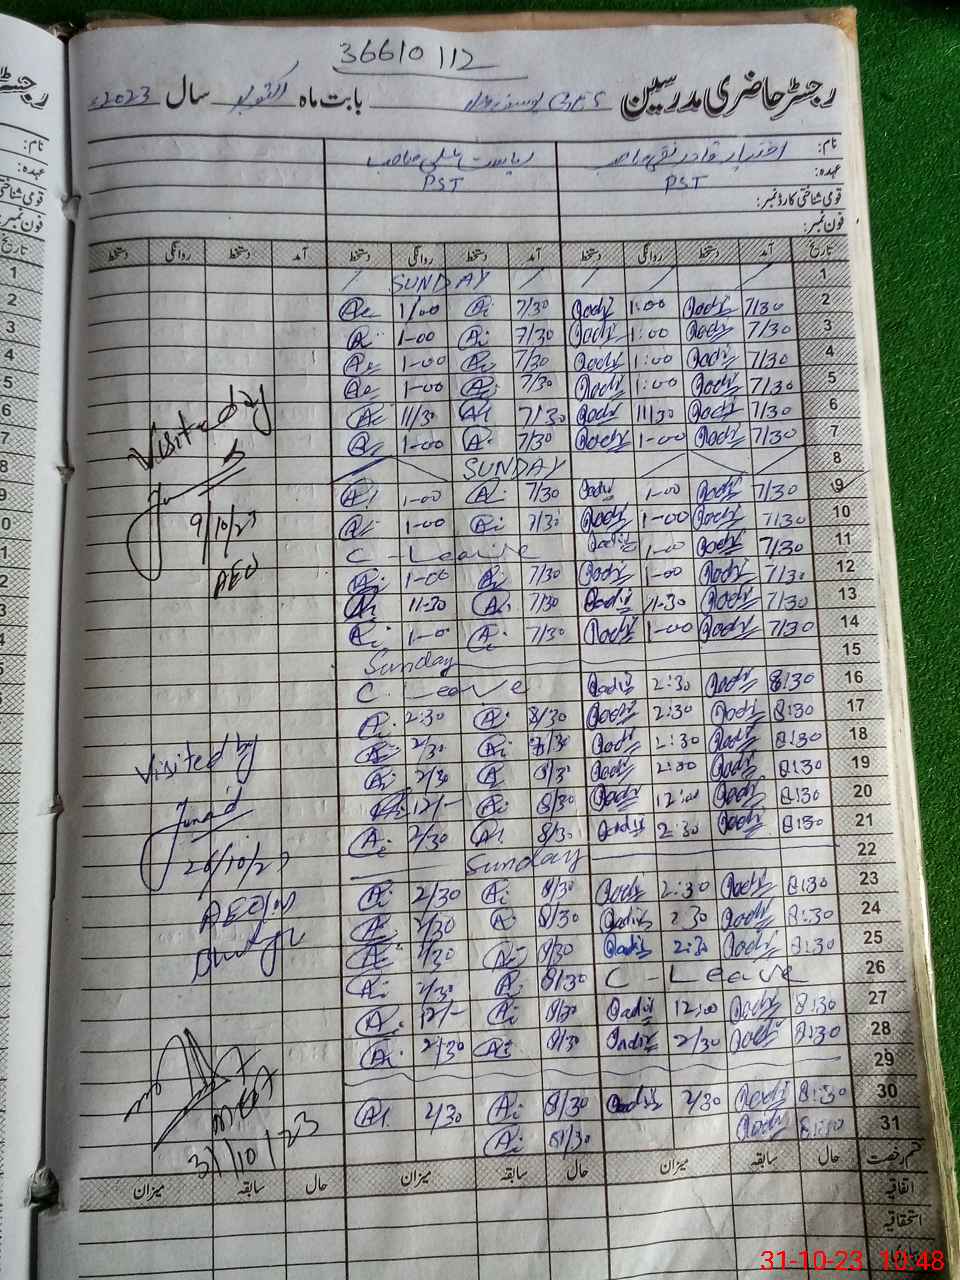 36610112
رجسٹر حاضری مدرسین GES بابت ماہ اکتوبر سال 2023ء
نام:
عہدہ: PST PST
قومی شناختی کارڈ نمبر:
فون نمبر:
تاریخ آمد دستخط روانگی دستخط آمد دستخط روانگی دستخط آمد دستخط روانگی دستخط
1 SUNDAY
2 7/30 Qadr 1:00 Qadr 7/30 Ai 1/00 Ai
3 7/30 Qadr 1:00 Qadr 7/30 Ai 1-00 Ai
4 7/30 Qadr 1:00 Qadr 7/30 Ai 1-00 Ai
5 7/30 Qadr 1:00 Qadr 7/30 Ai 1-00 Ai
6 7/30 Qadr 11/30 Qadr 7/30 Ai 11/30 Ai
7 7/30 Qadr 1-00 Qadr 7/30 Ai 1-00 Ai
8 SUNDAY
9 7/30 Qadr 1-00 Qadr 7/30 Ai 1-00 Ai
10 7/30 Qadr 1-00 Qadr 7/30 Ai 1-00 Ai
11 7/30 Qadr 1-00 Qadr C-Leave
12 7/30 Qadr 1-00 Qadr 7/30 Ai 1-00 Ai
13 7/30 Qadr 11-30 Qadr 7/30 Ai 11-30 Ai
14 7/30 Qadr 1-00 Qadr 7/30 Ai 1-00 Ai
15 Sunday
16 8:30 Qadr 2:30 Qadr C-Leave
17 8:30 Qadr 2:30 Qadr 8/30 Ai 2:30 Ai
18 8:30 Qadr 2:30 Qadr Ai 2/30 Ai
19 8:30 Qadr 2:30 Qadr Ai 2/30 Ai
20 8:30 Qadr 12:00 Qadr 8/30 Ai 12/- Ai
21 8:30 Qadr 2:30 Qadr 8/30 Ai 2/30 Ai
22 Sunday
23 8:30 Qadr 2:30 Qadr 8/30 Ai 2/30 Ai
24 8:30 Qadr 2:30 Qadr 8/30 Ai 2/30 Ai
25 8:30 Qadr 2:30 Qadr 8/30 Ai 2/30 Ai
26 C-Leave 8/30 Ai 2/30 Ai
27 8:30 Qadr 12:00 Qadr 8/30 Ai 12/- Ai
28 8:30 Qadr 2/30 Qadr 8/30 Ai 2/30 Ai
29
30 8:30 Qadr 2/30 Qadr 8/30 Ai 2/30 Ai
31 Qadr 8/30 Ai
قسم رخصت حال سابقہ میزان حال سابقہ میزان حال سابقہ میزان
اتفاقیہ
استحقاقیہ
Visited by
9/10/23
AEO
Visited by
Junaid
26/10/23
AEO
MEA
31/10/23
31-10-23 10:48